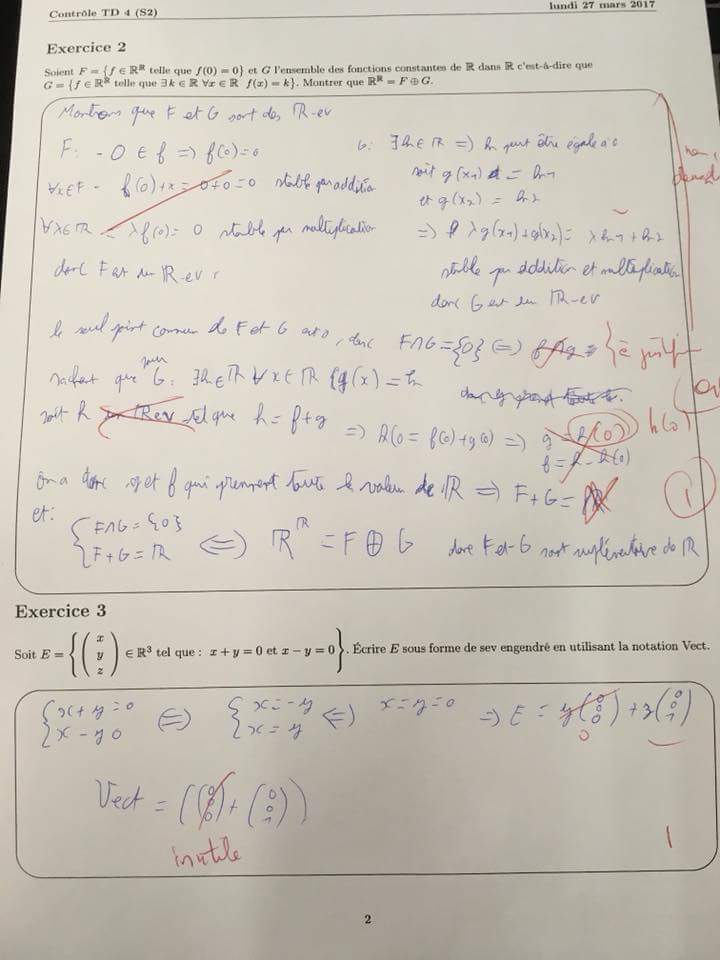 Contrôle TD 4 (S2)
lundi 27 mars 2017
Exercice 2
Soient F = {f ∈ ℝ^ℝ telle que f(0) = 0} et G l'ensemble des fonctions constantes de ℝ dans ℝ c'est-à-dire que
G = {f ∈ ℝ^ℝ telle que ∃k ∈ ℝ ∀x ∈ ℝ f(x) = k}. Montrer que ℝ^ℝ = F ⊕ G.
Montrons que F et G sont des ℝ-ev
F: - 0 ∈ f => f(0)=0
∀x∈F - f(0)+x = 0+0=0 stable par addition
∀λ∈ℝ - λf(0)= 0 stable par multiplication
donc F est un ℝ-ev
G: ∃k∈ℝ => k peut être égale à 0
soit g(x1) = k1
et g(x2) = k2
=> λg(x1)+g(x2)= λk1+k2
stable par addition et multiplication
donc G est un ℝ-ev
non
le seul point commun de F et G est 0, donc F∩G={0} <=> à justifier
sachant que G: ∃k∈ℝ ∀x∈ℝ g(x)=k
soit h tel que h = f+g => h(0 = f(0)+g(0) => g = h(0) h(0)
f = h - h(0)
On a donc g et f qui prennent toute le valeur de ℝ => F+G = ℝ
1
et:
{ F∩G={0}
{ F+G=ℝ <=> ℝ^ℝ = F ⊕ G donc F et G sont supplémentaire de ℝ
Exercice 3
Soit E = { (x y z) ∈ ℝ³ tel que : x + y = 0 et x − y = 0 }. Écrire E sous forme de sev engendré en utilisant la notation Vect.
{ x+y=0
{ x-y 0 <=> { x=-y
{ x=y <=> x=y=0 => E = y(0 0 0) + z(0 0 1)
0
Vect = ((0 0 0) + (0 0 1))
inutile
1
2